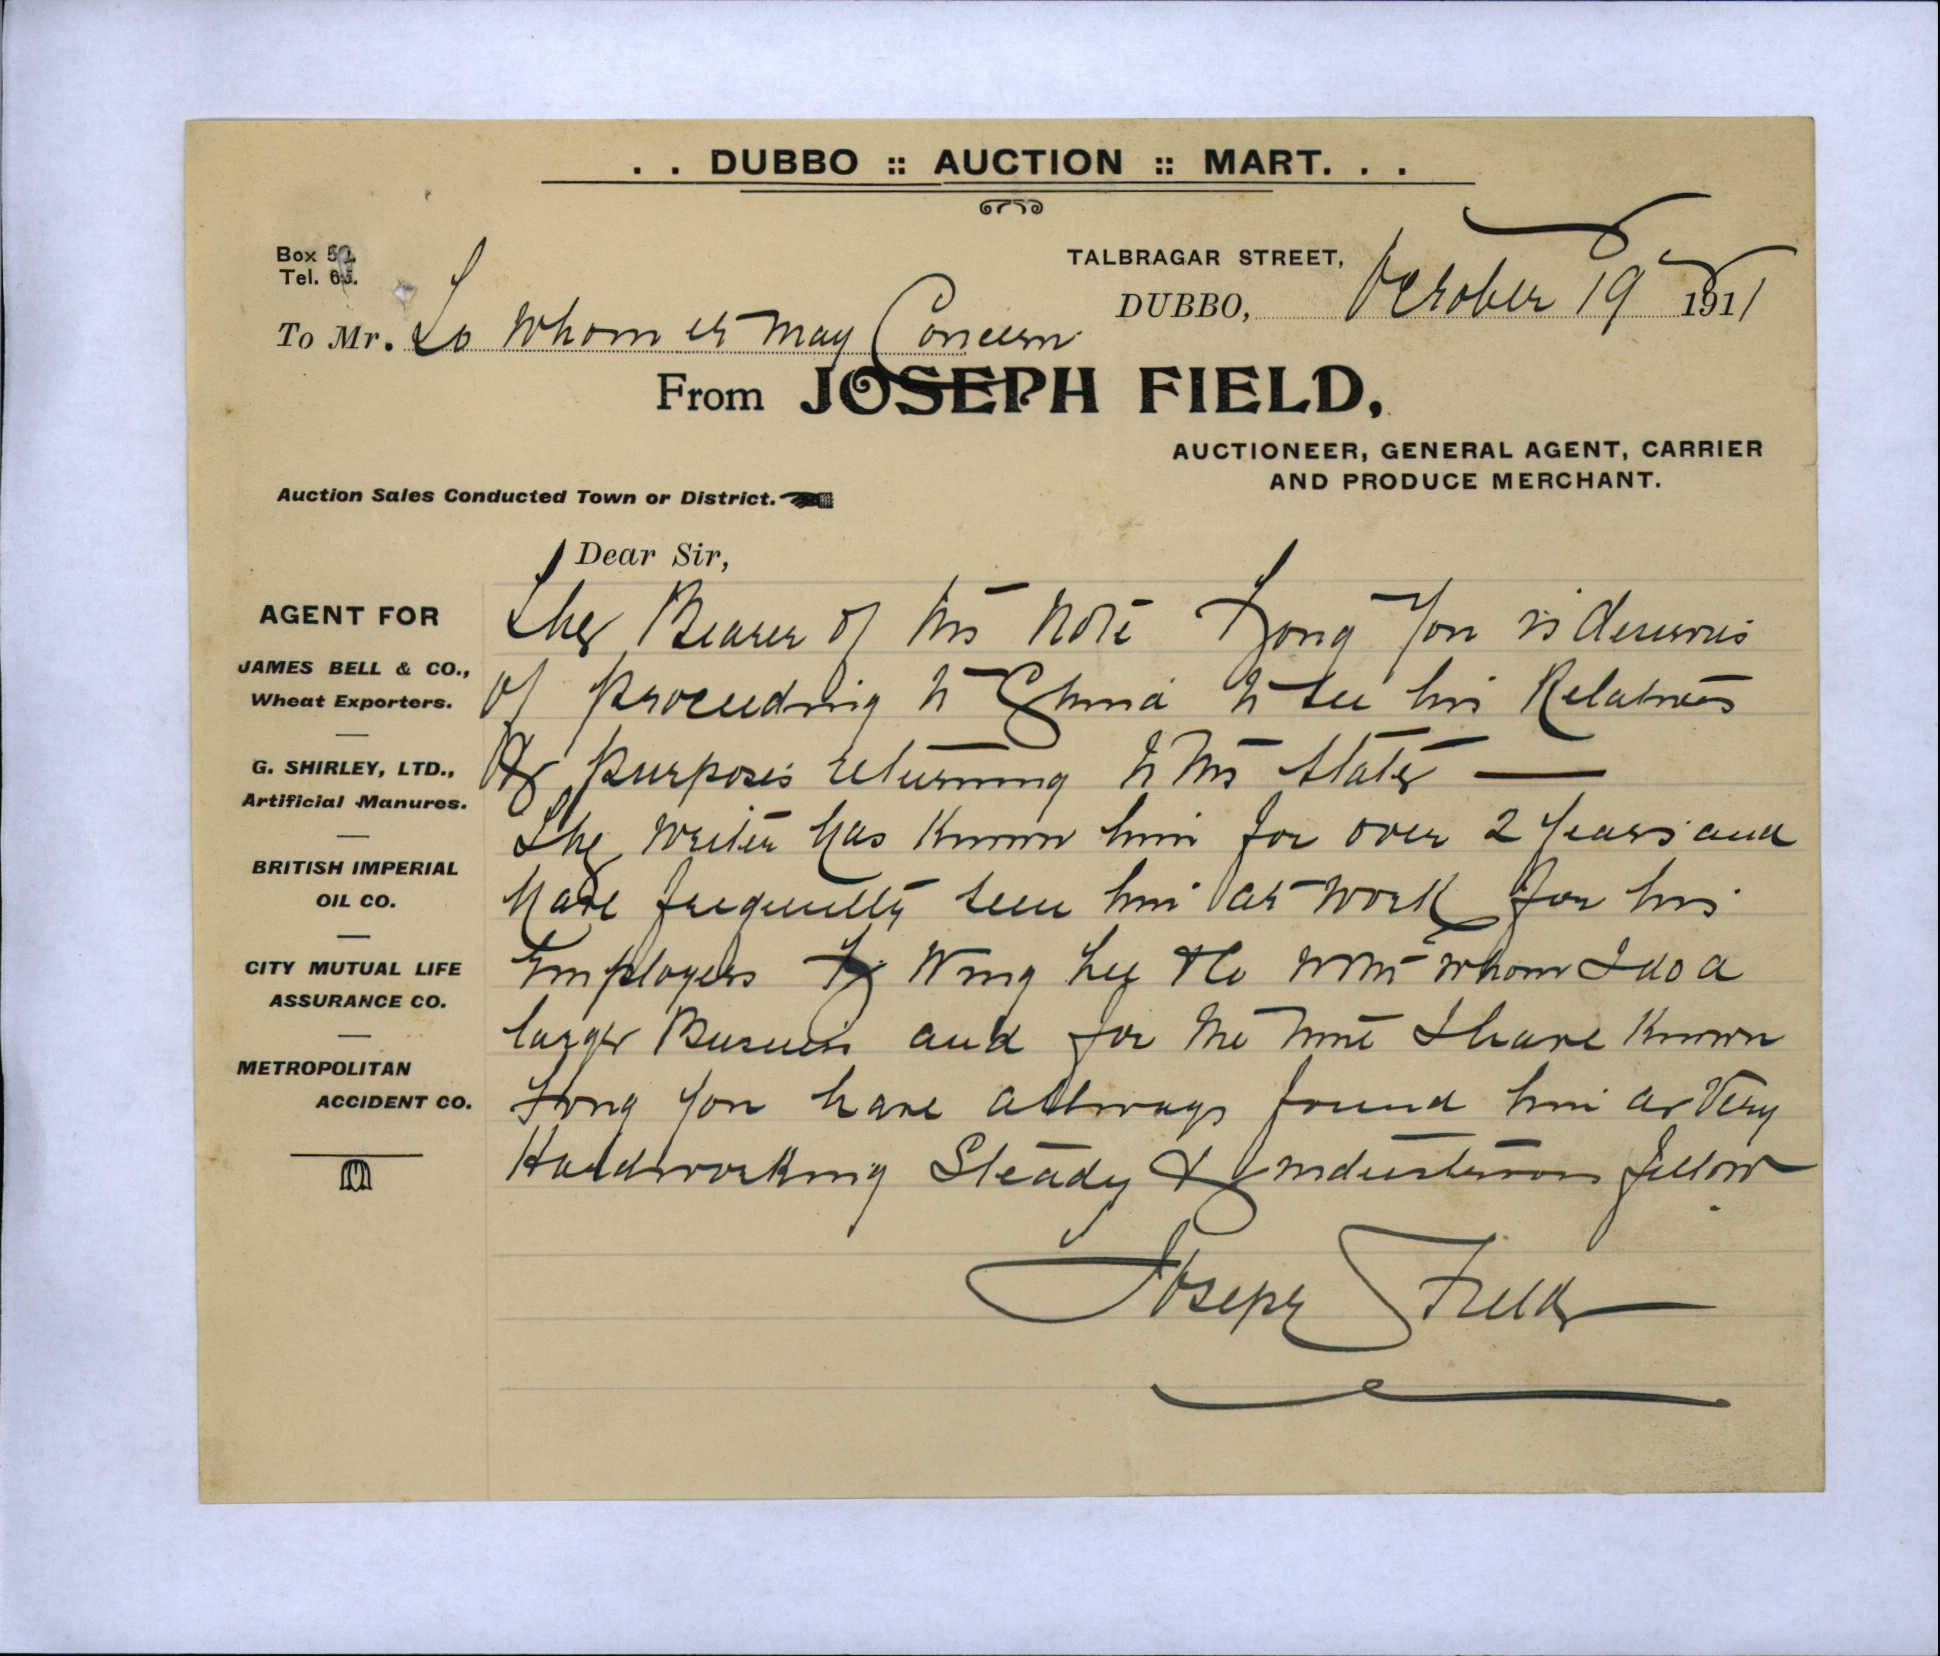 . . DUBBO :: AUCTION :: MART. . .
Box
Tel.
TALBRAGAR STREET,
DUBBO, October 19 1911
To Mr. To Whom it May Concern
From JOSEPH FIELD,
AUCTIONEER, GENERAL AGENT, CARRIER
AND PRODUCE MERCHANT.
Auction Sales Conducted Town or District.
Dear Sir,
AGENT FOR
JAMES BELL & CO.,
Wheat Exporters.
G. SHIRLEY, LTD.,
Artificial Manures.
BRITISH IMPERIAL
OIL CO.
CITY MUTUAL LIFE
ASSURANCE CO.
METROPOLITAN
ACCIDENT CO.
The Bearer of this Note Yon is desirous
of proceeding to China to see his Relatives
& purposes returning to this State —
The writer has known him for over 2 Years and
have frequently seen him at work for his
Employers Wing Lee & Co with whom I do a
large Business and for the time I have known
Yon have allways found him a Very
Hardworking Steady & industrious fellow.
Joseph Field